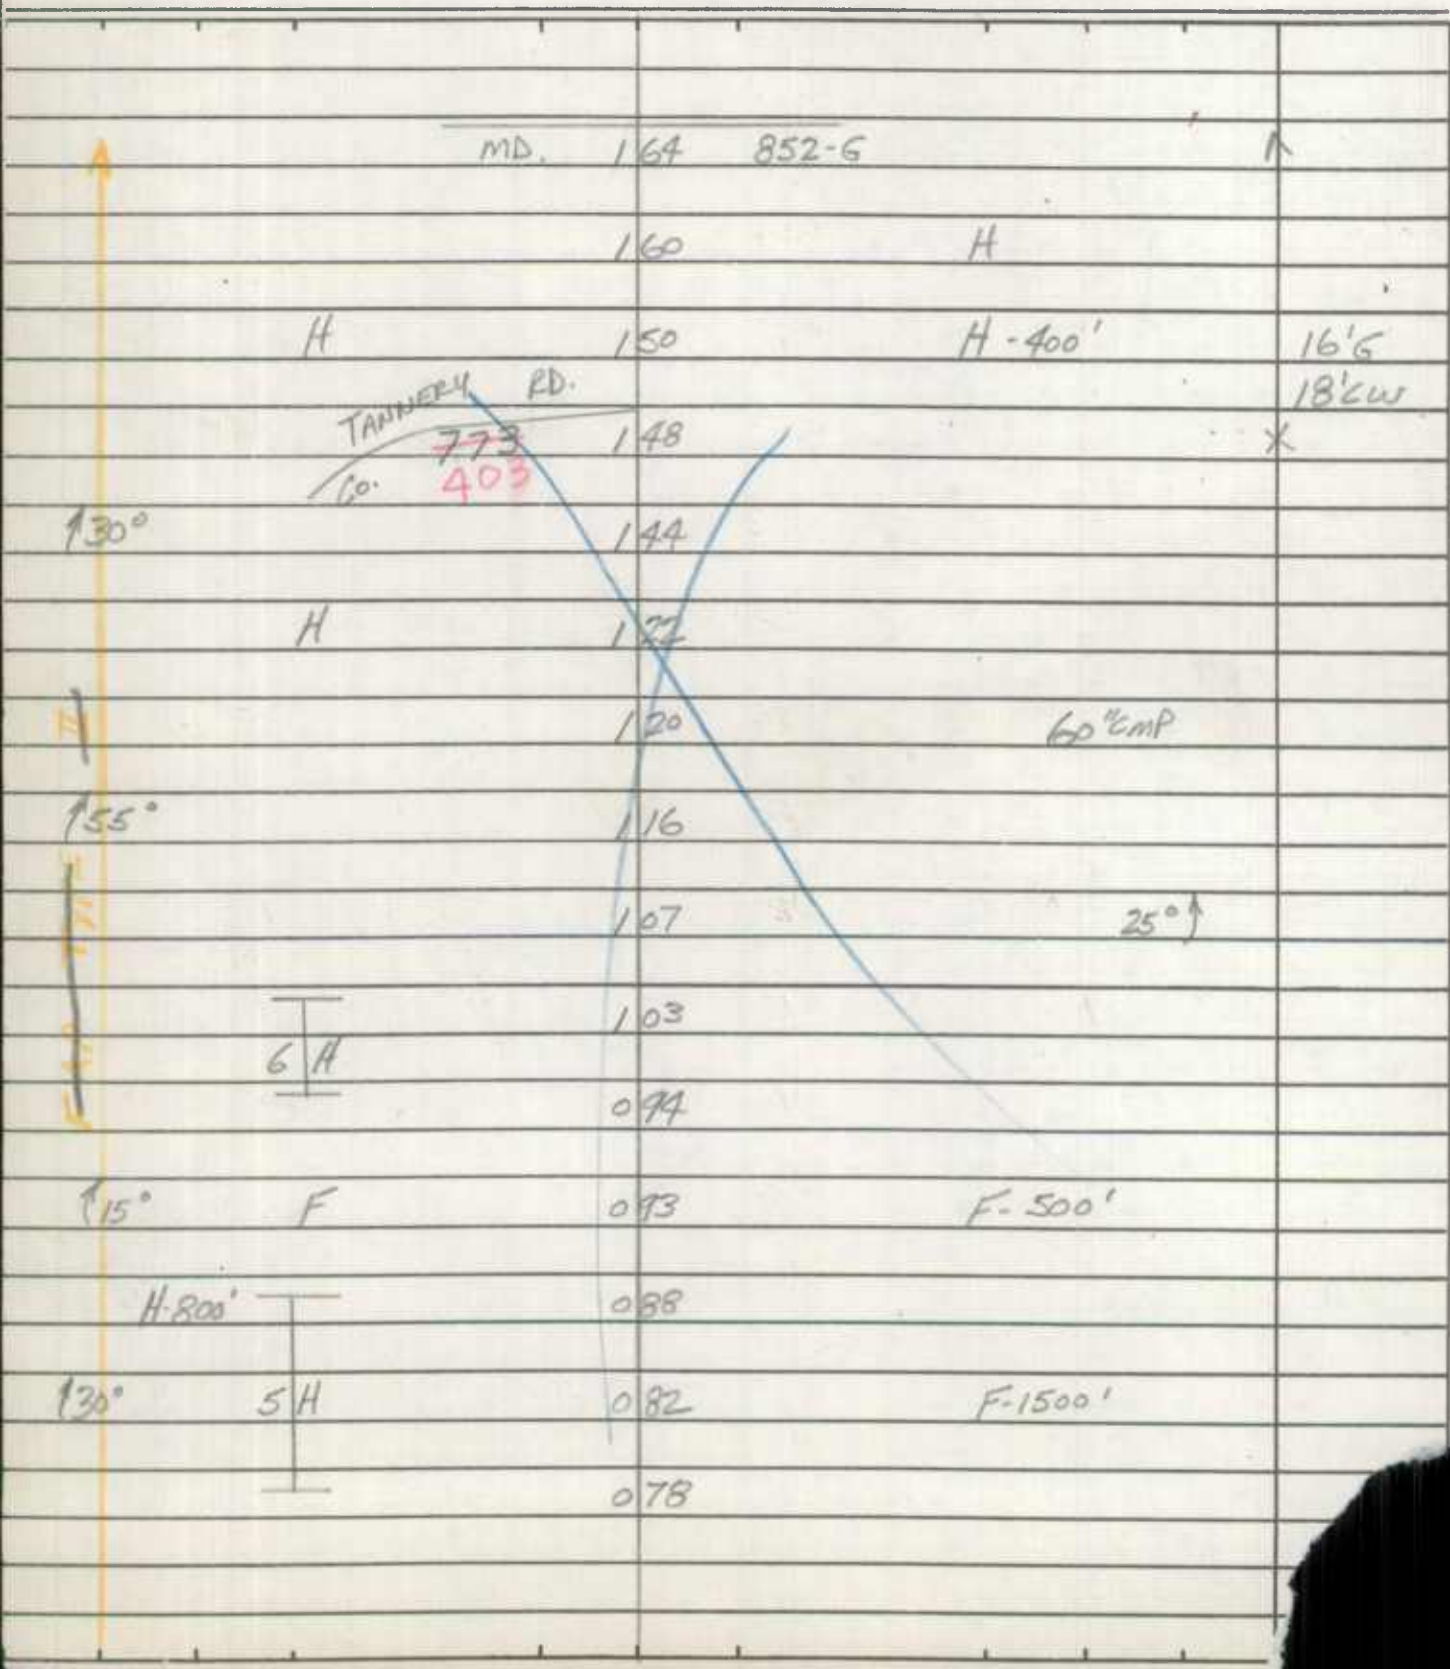 MD. 1 64 852-G
1 60 H
H 1 50 H-400' 16'G
TANNERY RD. 18'CW
773 1 48 X
Co. 403
30° 1 44
H 1 22
II 1 20 60"CMP
55° 1 16
1 07 25°
1 03
6 H
0 94
15° F 0 93 F-500'
H-800' 0 88
30° 5 H 0 82 F-1500'
0 78